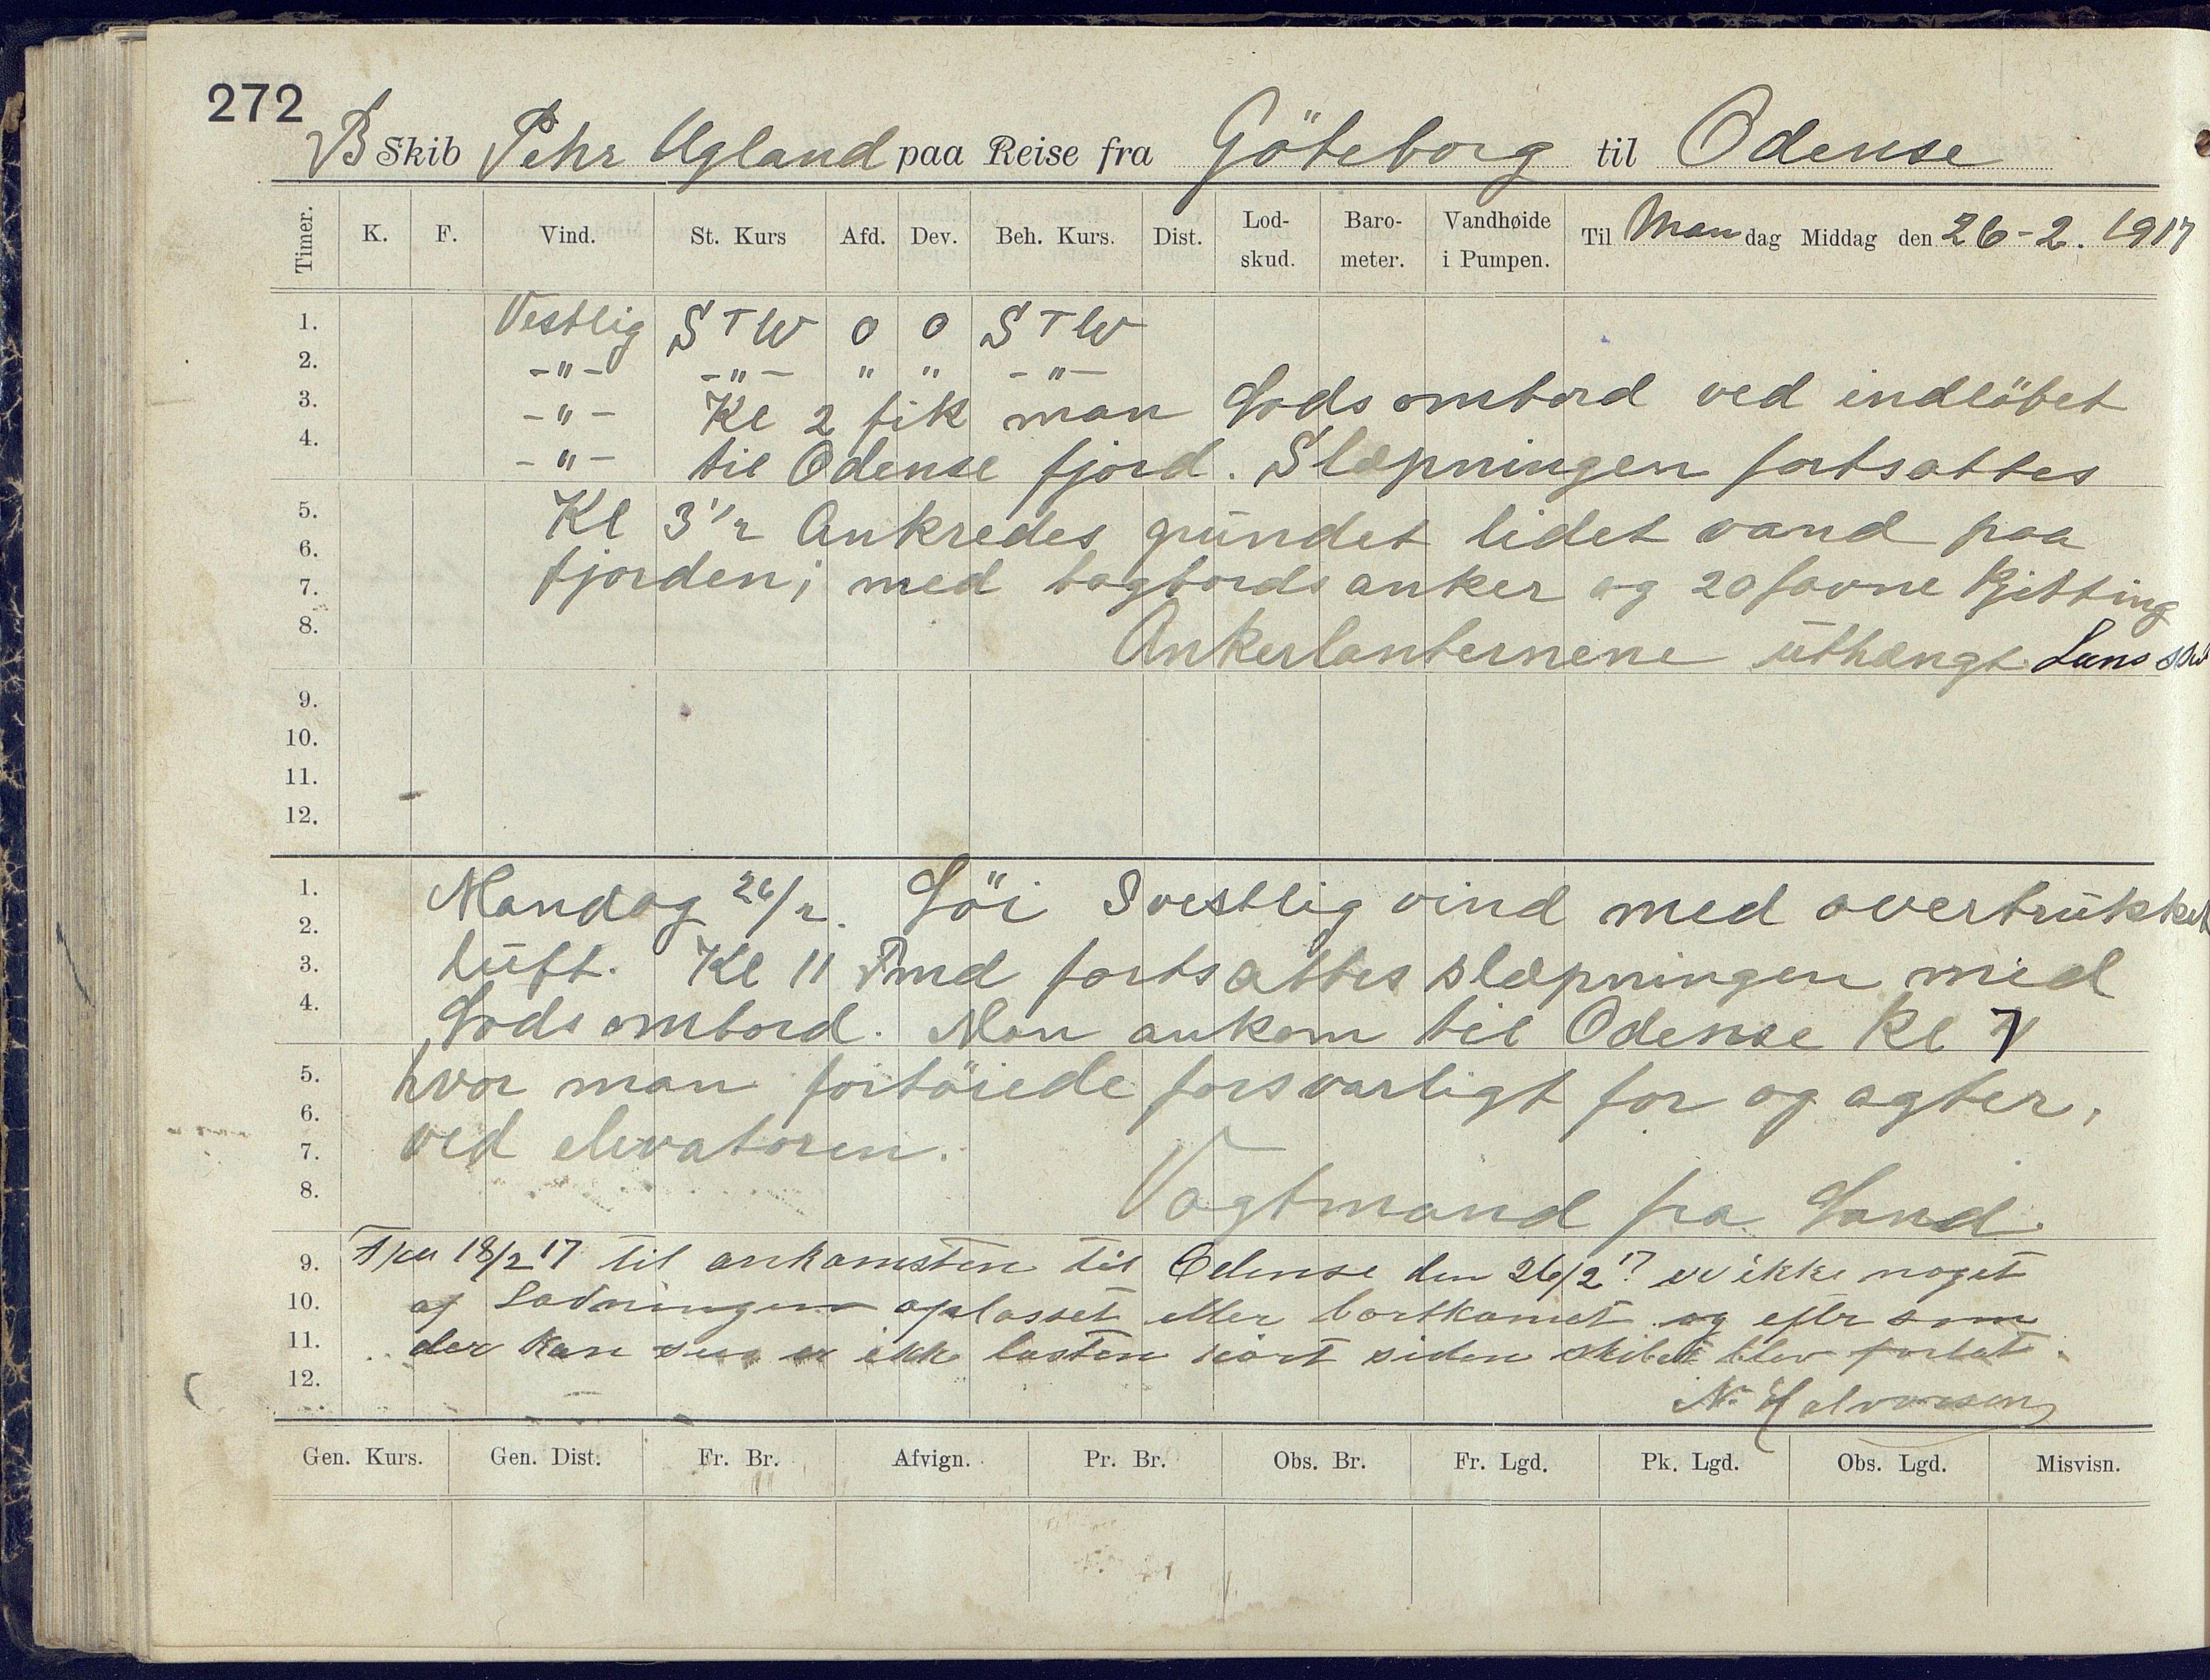 272
B Skib Pehr Ugland paa Reise fra Göteborg til Odense
Timer. K. F. Vind. St. Kurs Afd. Dev. Beh. Kurs. Dist. Lod-skud. Baro-meter. Vandhøide i Pumpen. Til Mandag Middag den 26-2. 1917
1. Vestlig STW 0 0 STW
2. -"- -"- " " -"-
3. -"- Kl 2 fik man Lods ombord ved indlöbet
4. -"- til Odense fjord. Slæpningen fortsattes
5. Kl 3 1/2 Ankredes grundet lidet vand paa
6. fjorden; med bagbords anker og 20 favne Kjetting
7.
8. Ankerlanternene uthængt Lens
9.
10.
11.
12.
1. Mandag 26/2. Löi Svestlig vind med overtrukket
2. luft. Kl 11 Fmd fortsattes slæpningen med
3. Lods ombord. Man ankom til Odense Kl 7
4. hvor man fortöiede forsvarligt for og agter,
5. ved elevatoren.
6.
7.
8. Vagtmand fra Land.
9. Fra 18/2 17 til ankomsten til Odense den 26/2 17 er ikke noget
10. af Ladningen oplosset eller bortkomet og efter som
11. der kan sees er ikke lasten rört siden skibet blev forlat.
12. N. Halvorsen
Gen. Kurs. Gen. Dist. Fr. Br. Afvign. Pr. Br. Obs. Br. Fr. Lgd. Pk. Lgd. Obs. Lgd. Misvisn.